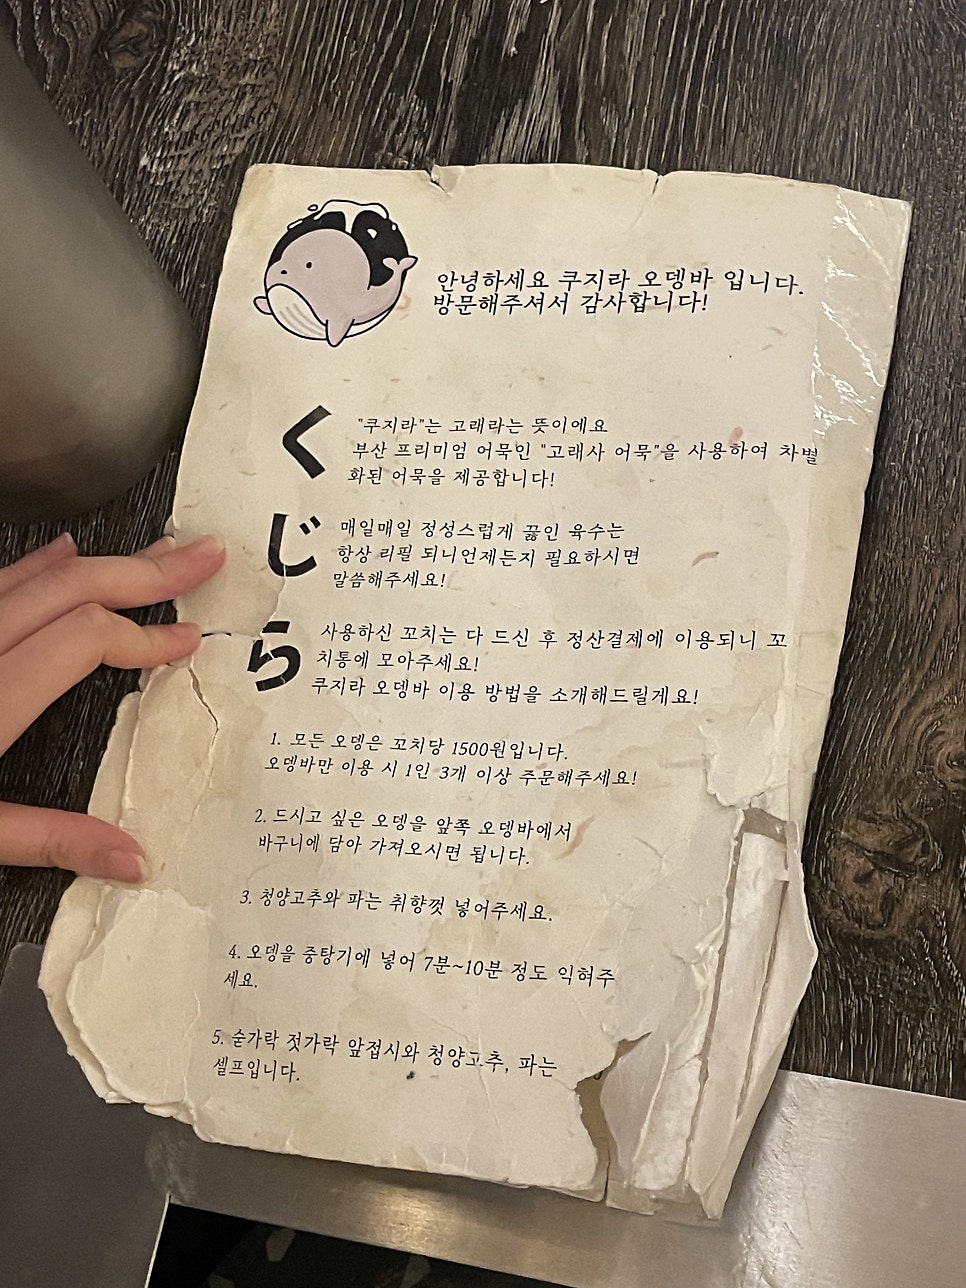 안녕하세요 쿠지라 오뎅바 입니다.
방문해주셔서 감사합니다!
く
"쿠지라"는 고래라는 뜻이에요
부산 프리미엄 어묵인 "고래사 어묵"을 사용하여 차별
화된 어묵을 제공합니다!
じ
매일매일 정성스럽게 끓인 육수는
항상 리필 되니언제든지 필요하시면
말씀해주세요!
ら
사용하신 꼬치는 다 드신 후 정산결제에 이용되니 꼬
치통에 모아주세요!
쿠지라 오뎅바 이용 방법을 소개해드릴게요!
1. 모든 오뎅은 꼬치당 1500원입니다.
오뎅바만 이용 시 1인 3개 이상 주문해주세요!
2. 드시고 싶은 오뎅을 앞쪽 오뎅바에서
바구니에 담아 가져오시면 됩니다.
3. 청양고추와 파는 취향껏 넣어주세요.
4. 오뎅을 중탕기에 넣어 7분~10분 정도 익혀주
세요.
5. 숟가락 젓가락 앞접시와 청양고추, 파는
셀프입니다.